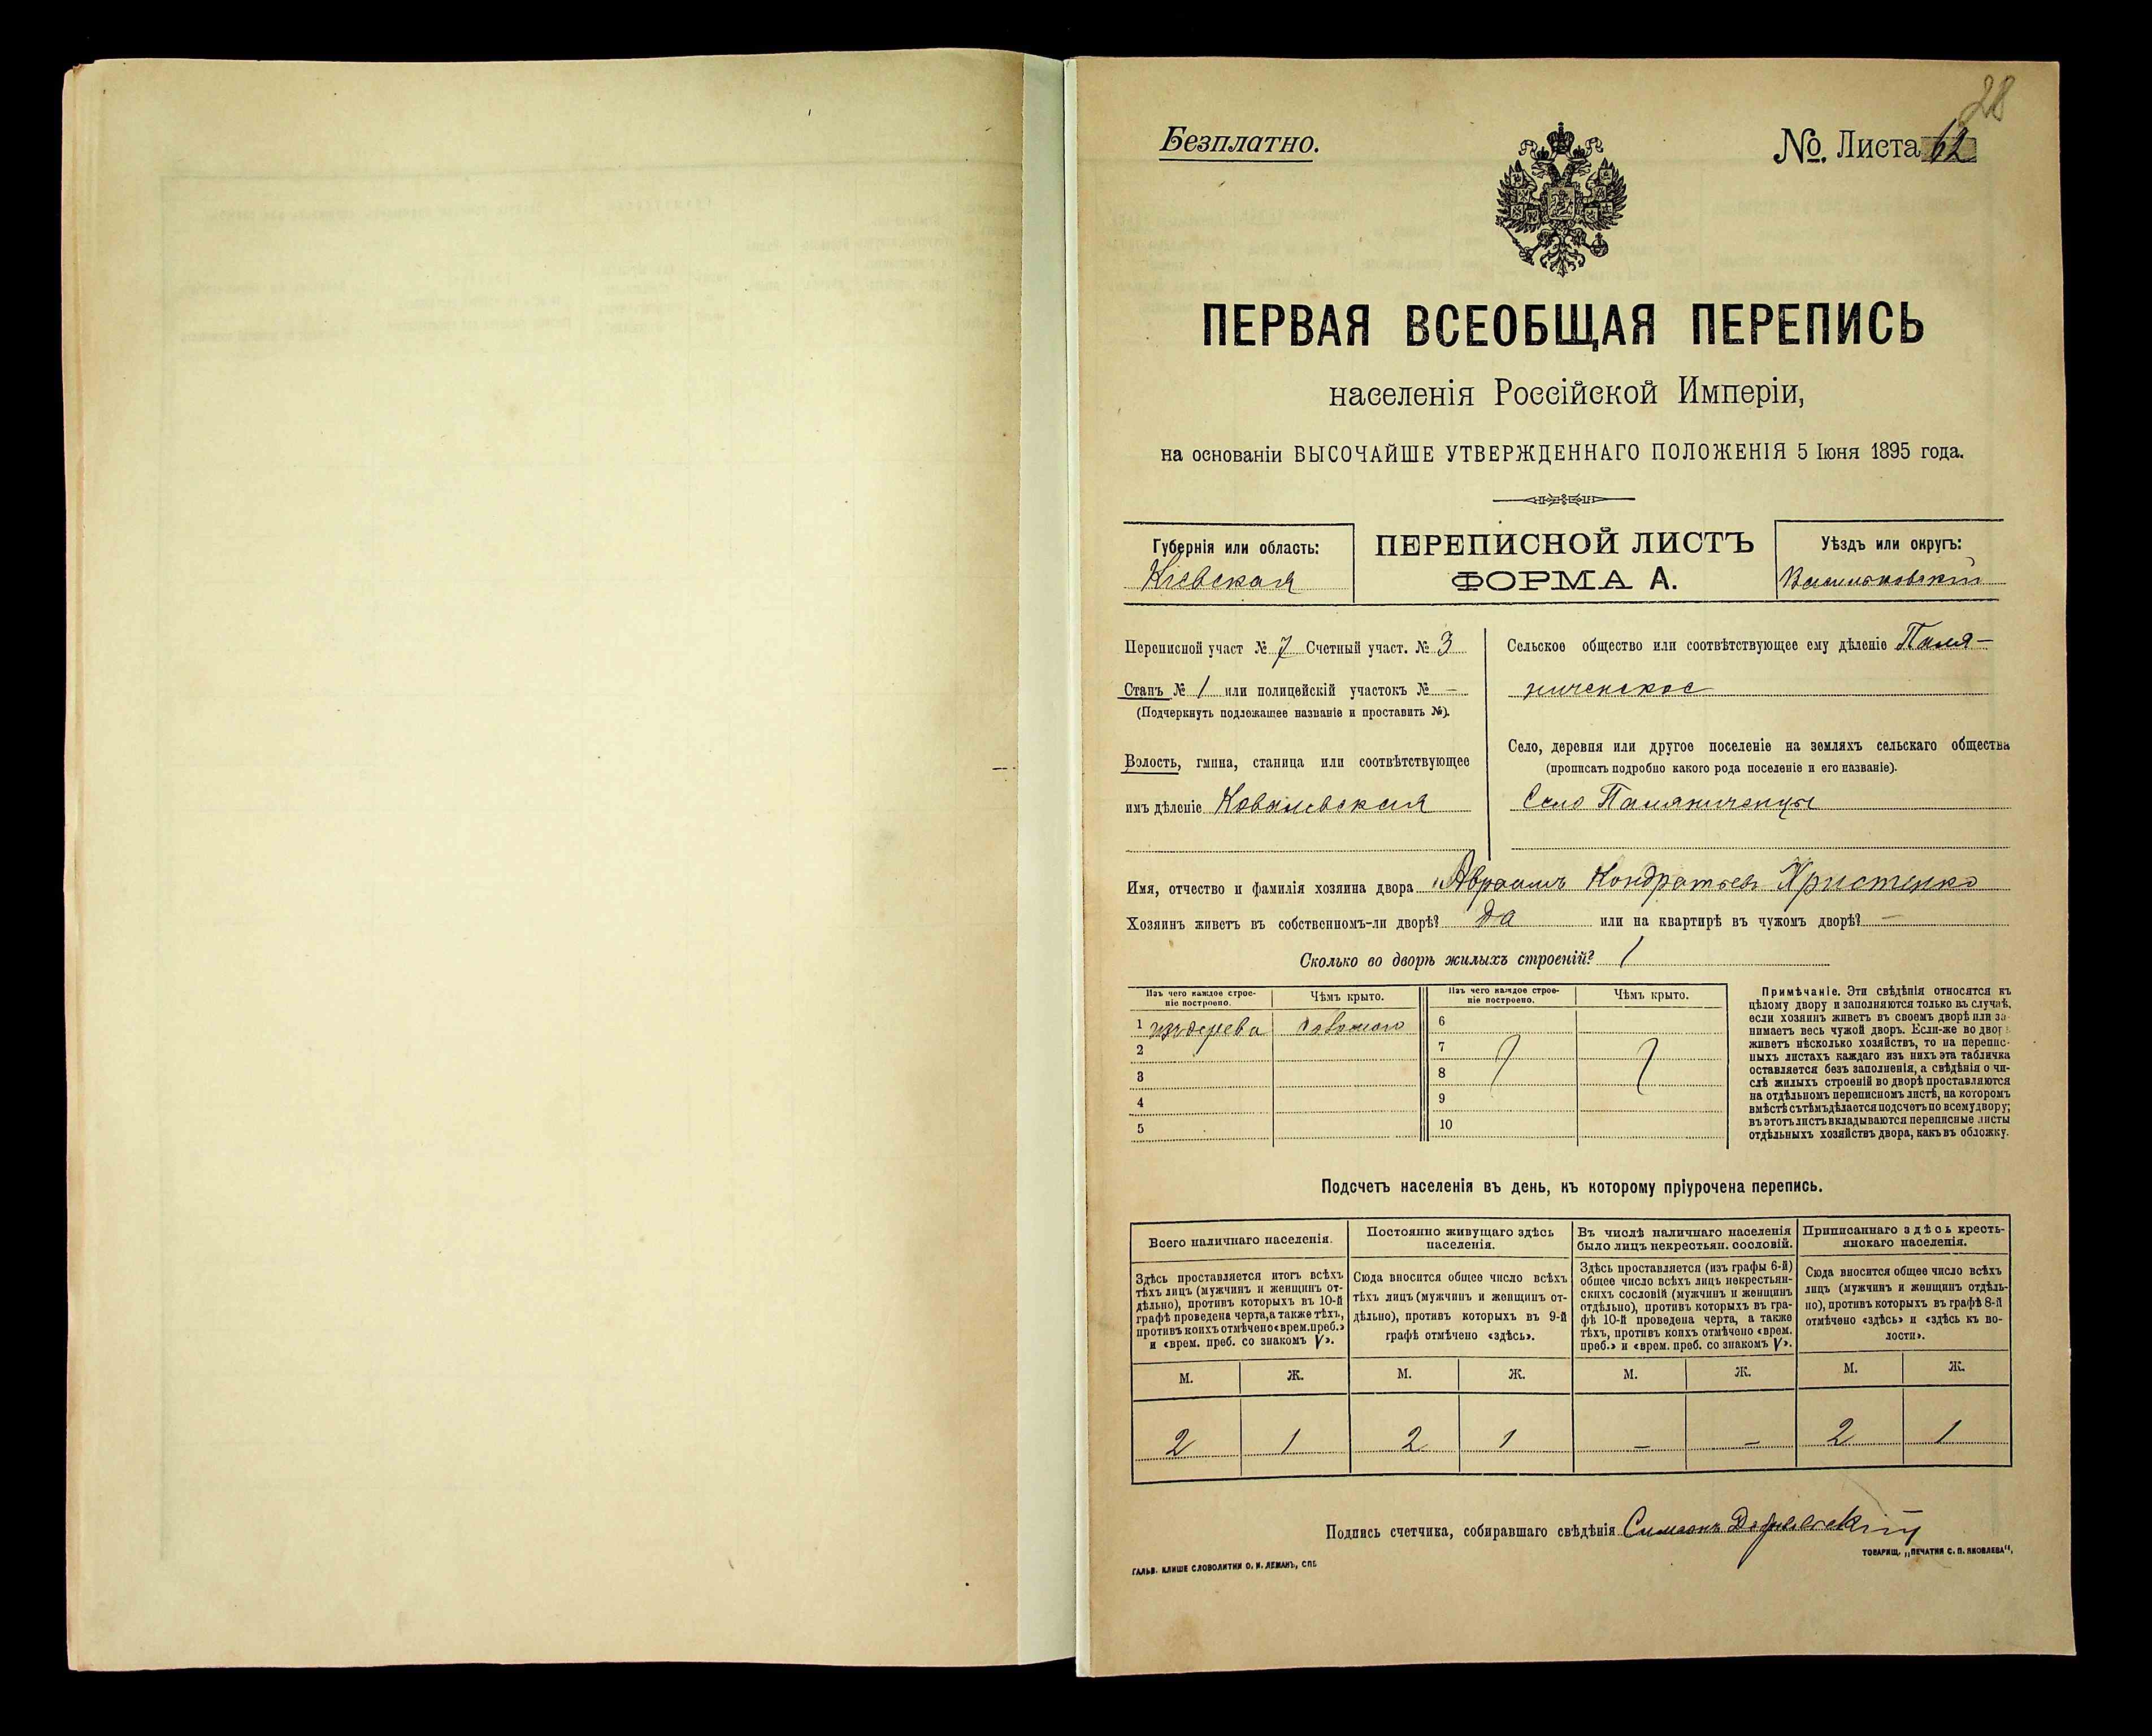 28
Безплатно.
№. Листа 62
ПЕРВАЯ ВСЕОБЩАЯ ПЕРЕПИСЬ
населенія Россійской Имперіи,
на основаніи ВЫСОЧАЙШЕ УТВЕРЖДЕННАГО ПОЛОЖЕНІЯ 5 Іюня 1895 года.
Губернія или область:
Кіевская
ПЕРЕПИСНОЙ ЛИСТЪ
ФОРМА А.
Уѣздъ или округъ:
Васильковскій
Переписной участ № 7 Счетный участ. № 3
Станъ № 1 или полицейскій участокъ № —
(Подчеркнуть подлежащее названіе и проставить №).
Волость, гмина, станица или соотвѣтствующее
имъ дѣленіе Ковалевская
Сельское общество или соотвѣтствующее ему дѣленіе Паля-
ниченское
Село, деревня или другое поселеніе на земляхъ сельскаго общества
(прописать подробно какого рода поселеніе и его названіе).
Село Паляниченцы
Имя, отчество и фамилія хозяина двора Авраамъ Кондратьевъ Христенко
Хозяинъ живетъ въ собственномъ-ли дворѣ? Да или на квартирѣ въ чужомъ дворѣ? —
Сколько во дворѣ жилыхъ строеній? 1
Изъ чего каждое строе-
ніе построено.
Чѣмъ крыто.
Изъ чего каждое строе-
ніе построено.
Чѣмъ крыто.
1 изъ дерева соломою
2
3
4
5
6
7
8
9
10
Примѣчаніе. Эти свѣдѣнія относятся къ
цѣлому двору и заполняются только въ случаѣ,
если хозяинъ живетъ въ своемъ дворѣ или за-
нимаетъ весь чужой дворъ. Если-же во дворѣ
живетъ нѣсколько хозяйствъ, то на перепис-
ныхъ листахъ каждаго изъ нихъ эта табличка
оставляется безъ заполненія, а свѣдѣнія о чи-
слѣ жилыхъ строеній во дворѣ проставляются
на отдѣльномъ переписномъ листѣ, на которомъ
вмѣстѣ съ тѣмъ дѣлается подсчетъ по всему двору;
въ этотъ листъ вкладываются переписные листы
отдѣльныхъ хозяйствъ двора, какъ въ обложку.
Подсчетъ населенія въ день, къ которому пріурочена перепись.
Всего наличнаго населенія.
Здѣсь проставляется итогъ всѣхъ
тѣхъ лицъ (мужчинъ и женщинъ от-
дѣльно), противъ которыхъ въ 10-й
графѣ проведена черта, а также тѣхъ,
противъ коихъ отмѣчено «врем. преб.»
и «врем. преб. со знакомъ V».
Постоянно живущаго здѣсь
населенія.
Сюда вносится общее число всѣхъ
тѣхъ лицъ (мужчинъ и женщинъ от-
дѣльно), противъ которыхъ въ 9-й
графѣ отмѣчено «здѣсь».
Въ числѣ наличнаго населенія
было лицъ некрестьян. сословій.
Здѣсь проставляется (изъ графы 6-й)
общее число всѣхъ лицъ некрестьян-
скихъ сословій (мужчинъ и женщинъ
отдѣльно), противъ которыхъ въ гра-
фѣ 10-й проведена черта, а также
тѣхъ, противъ коихъ отмѣчено «врем.
преб.» и «врем. преб. со знакомъ V».
Приписаннаго здѣсь кресть-
янскаго населенія.
Сюда вносится общее число всѣхъ
лицъ (мужчинъ и женщинъ отдѣль-
но), противъ которыхъ въ графѣ 8-й
отмѣчено «здѣсь» и «здѣсь къ во-
лости».
М. Ж. М. Ж. М. Ж. М. Ж.
2 1 2 1 — — 2 1
Подпись счетчика, собиравшаго свѣдѣнія Симеонъ
ГАЛЬВ. КЛИШЕ СЛОВОЛИТНИ О. И. ЛЕМАНЪ, СПБ
ТОВАРИЩ. „ПЕЧАТНЯ С. П. ЯКОВЛЕВА“.